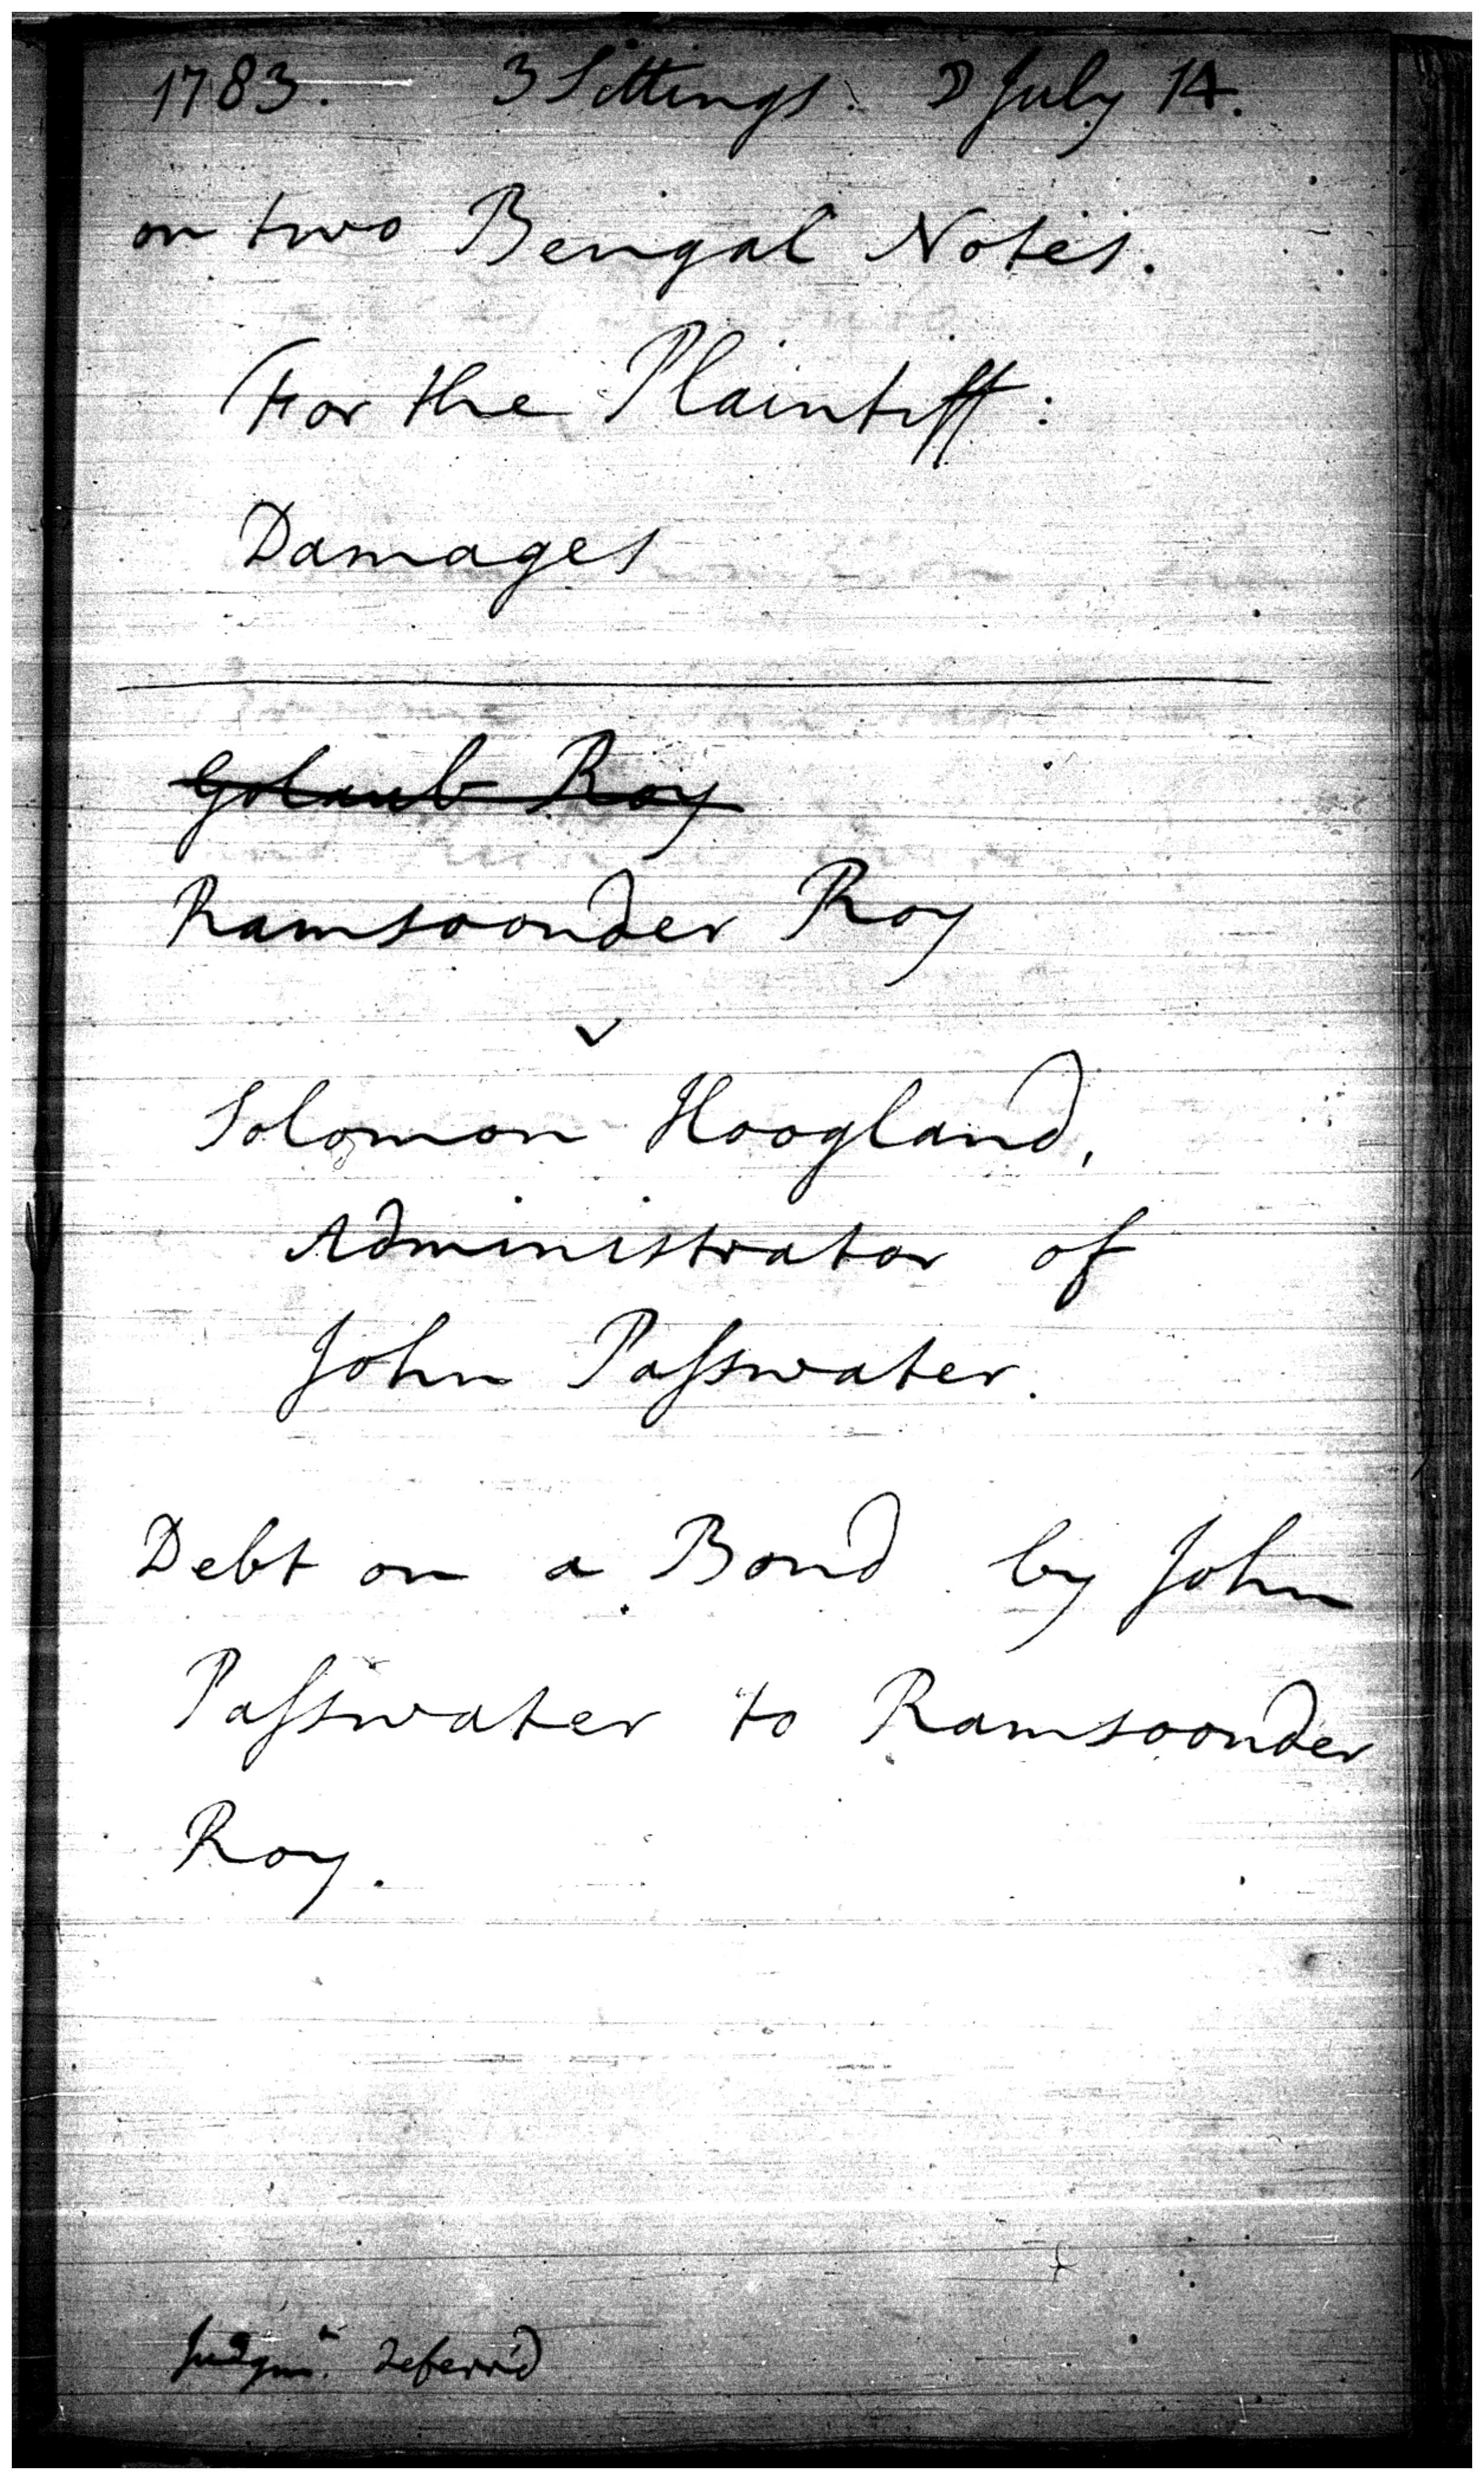 1783. 3 Sittings. ☽ July 14.
on two Bengal Notes.
For the Plaintiff:
Damages
Golaub Roy
Ramsoonder Roy
v
Solomon Hoogland,
Administrator of
John Paſswater.
Debt on a Bond by John
Paſswater to Ramsoonder
Roy.
Judgmt. deferr'd